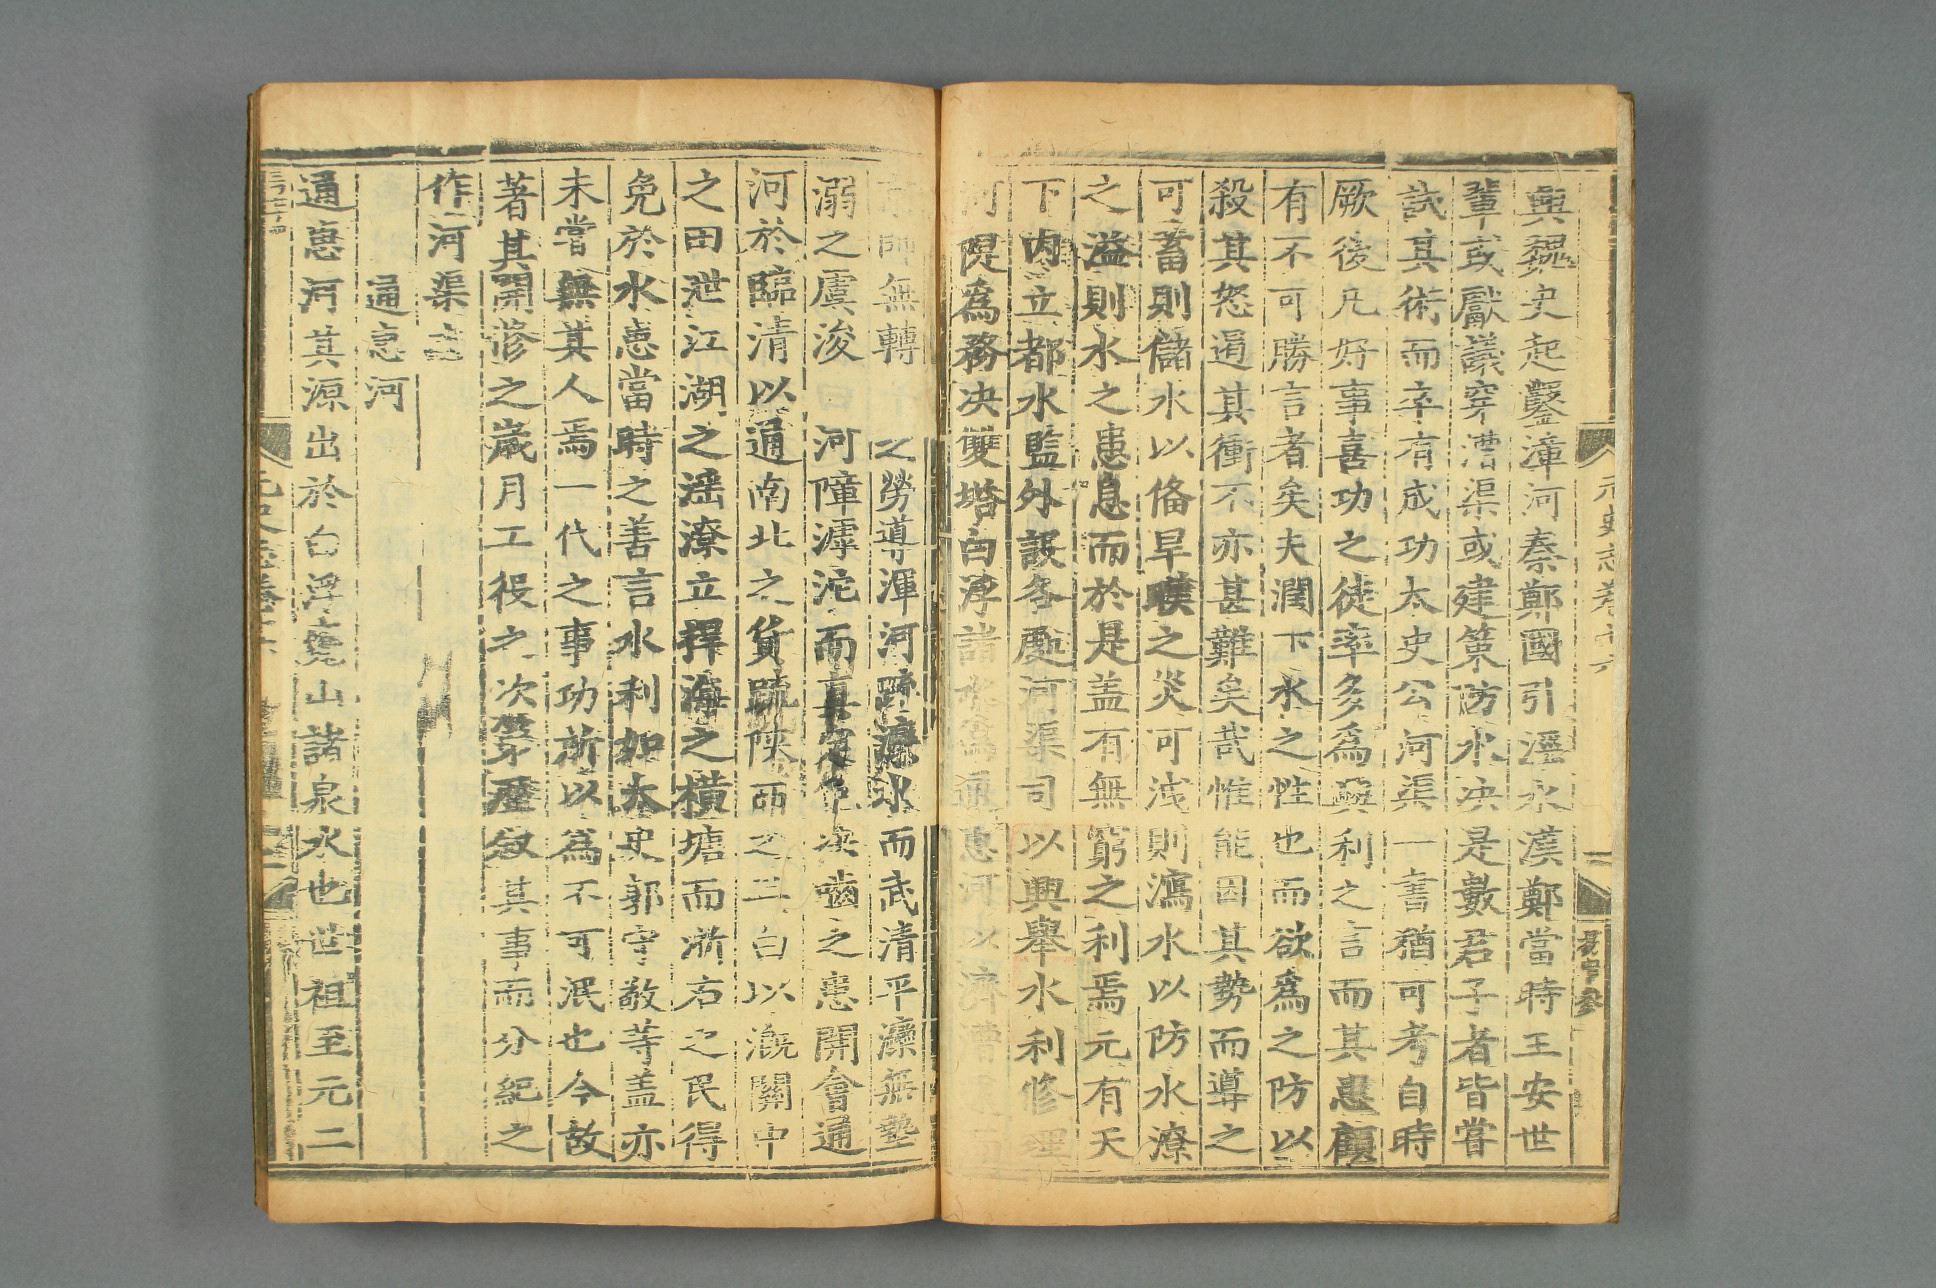 興魏史起鑿漳河秦鄭國引涇水漢鄭當時王安世
輩或獻議穿漕渠或建策防水决是數君子者皆嘗
試其術而卒有成功太史公河渠一書猶可考自時
厥後凡好事喜功之徒率多爲興利之言而其患顧
有不可勝言者矣夫潤下水之性也而欲爲之防以
殺其怒遏其衝不亦甚難矣哉惟能因其勢而導之
可蓄則儲水以俻旱暵之災可洩則瀉水以防水潦
之溢則水之患息而於是盖有無窮之利焉元有天
下内立都水監外設各處河渠司以興舉水利修理
河隄爲務决雙塔白浮諸水爲通惠河以濟漕
師無轉
之勞導渾河疏灤水而武清平灤無墊
溺之虞浚
河障滹沱而真定免决嚙之患開會通
河於臨清以通南北之貨疏陝西之三白以漑關中
之田泄江湖之滛潦立捍海之横塘而浙右之民得
免於水患當時之善言水利如太史郭守敬等盖亦
未嘗無其人焉一代之事功所以爲不可泯也今故
著其開修之歲月工役之次第歷敘其事而分紀之
作河渠志
通惠河
通惠河其源出於白浮甕山諸泉水也世祖至元二
元史志卷十六